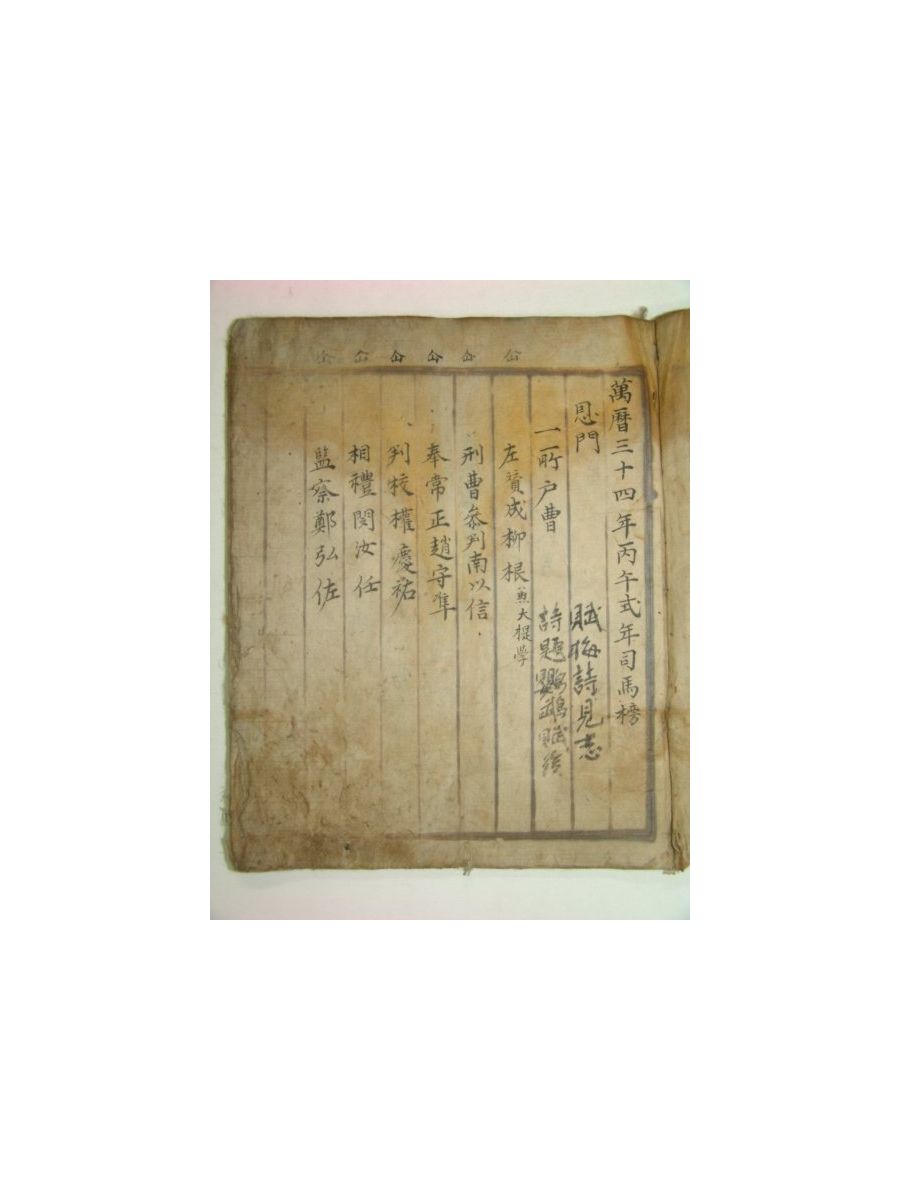 萬曆三十四年丙午式年司馬榜
恩門 賦梅詩見志
一所戶曹 詩題鸚鵡賦後
左贊成柳根兼大提學
刑曹參判南以信
奉常正趙守準
判校權慶祐
相禮閔汝任
監察鄭弘佐